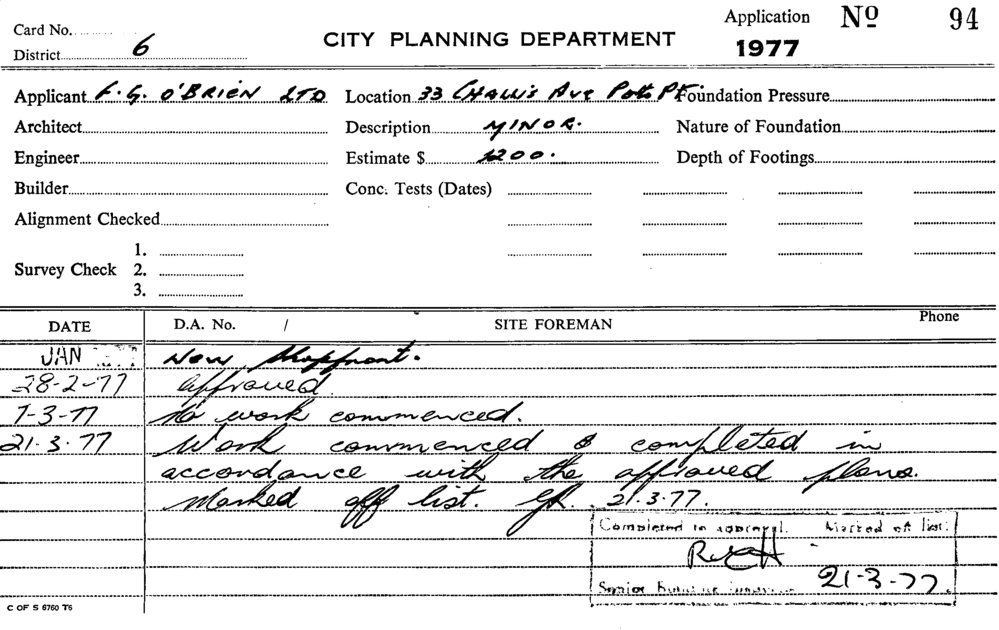 Card No.
Application Nº 94
District 6
CITY PLANNING DEPARTMENT
1977
Applicant F. G. O'BRIEN LTD Location 33 CHALLIS AVE Potts Pt. Foundation Pressure
Architect Description MINOR. Nature of Foundation
Engineer Estimate $ 1200. Depth of Footings
Builder Conc. Tests (Dates)
Alignment Checked
1.
Survey Check 2.
3.
DATE D.A. No. / SITE FOREMAN Phone
JAN New Shopfront.
28-2-77 approved
7-3-77 No work commenced.
21.3.77 Work commenced & completed in
accordance with the approved plans.
Marked off list. 21.3.77.
Completed to approval. Marked off list.
Senior Building
21-3-77.
C OF S 6760 T6